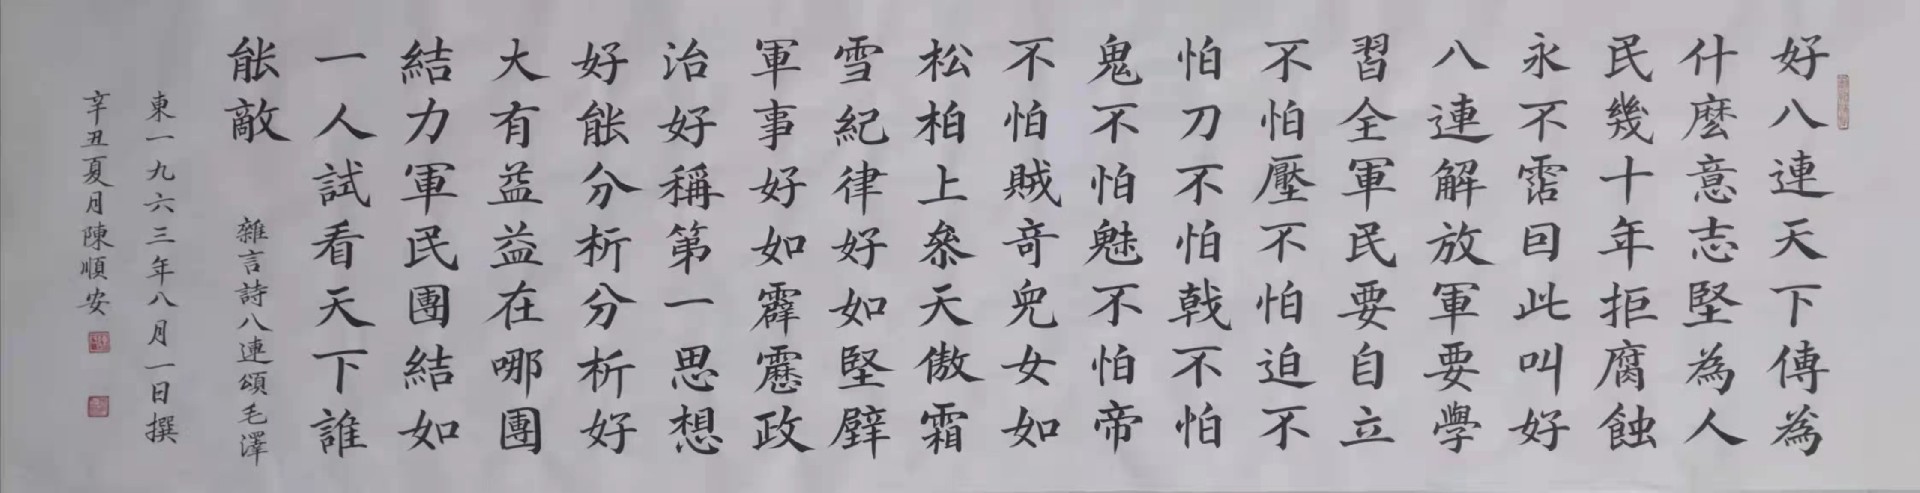 好八連天下傳為
什麼意志堅為人
民幾十年拒腐蝕
永不霑囙此叫好
八連解放軍要學
習全軍民要自立
不怕壓不怕迫不
怕刀不怕戟不怕
鬼不怕魅不怕帝
不怕賊奇兒女如
松柏上參天傲霜
雪紀律好如堅壁
軍事好如霹靂政
治好稱第一思想
好能分析分析好
大有益益在哪團
結力軍民團結如
一人試看天下誰
能敵
雜言詩八連頌毛澤
東一九六三年八月一日撰
辛丑夏月陳順安